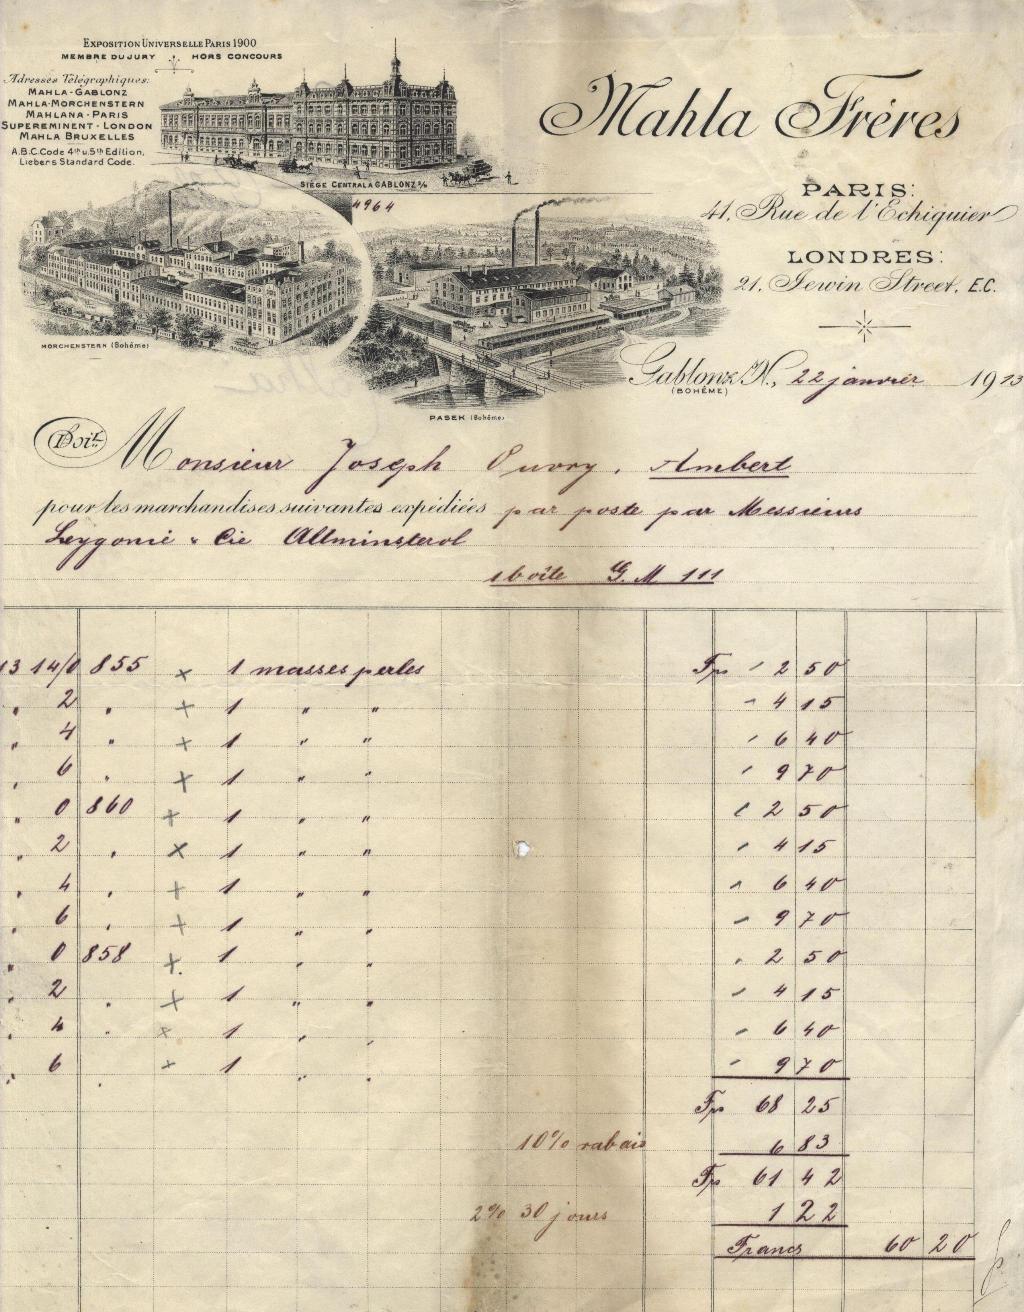 EXPOSITION UNIVERSELLE PARIS 1900
MEMBRE DU JURY HORS CONCOURS
Adresses Télégraphiques:
MAHLA-GABLONZ
MAHLA-MORCHENSTERN
MAHLANA-PARIS
SUPEREMINENT-LONDON
MAHLA BRUXELLES
A.B.C. Code 4th u. 5th Edition.
Liebers Standard Code.
SIÈGE CENTRAL À GABLONZ a/N
4964
MORCHENSTERN (Bohême)
PASEK (Bohême)
Mahla Fréres
PARIS:
41, Rue de l'Echiquier
LONDRES:
21, Jewin Street, E.C.
Gablonz a/N., 22 janvier 1913
(BOHÊME)
Doit
Monsieur Joseph Ouvry, Ambert
pour les marchandises suivantes expédiées par poste par Messieurs
Leygonie & Cie Allminsterol
1 boîte G.M 111
13 14/0 855 × 1 masses perles Frs 2 50
" 2 " × 1 " " 4 15
" 4 " × 1 " " 6 40
" 6 " × 1 " " 9 70
" 0 860 × 1 " " 2 50
" 2 " × 1 " " 4 15
" 4 " × 1 " " 6 40
" 6 " × 1 " " 9 70
" 0 858 × 1 " " 2 50
" 2 " × 1 " " 4 15
" 4 " × 1 " " 6 40
" 6 " × 1 " " 9 70
Frs 68 25
10% rabais 6 83
Frs 61 42
2% 30 jours 1 22
Francs 60 20